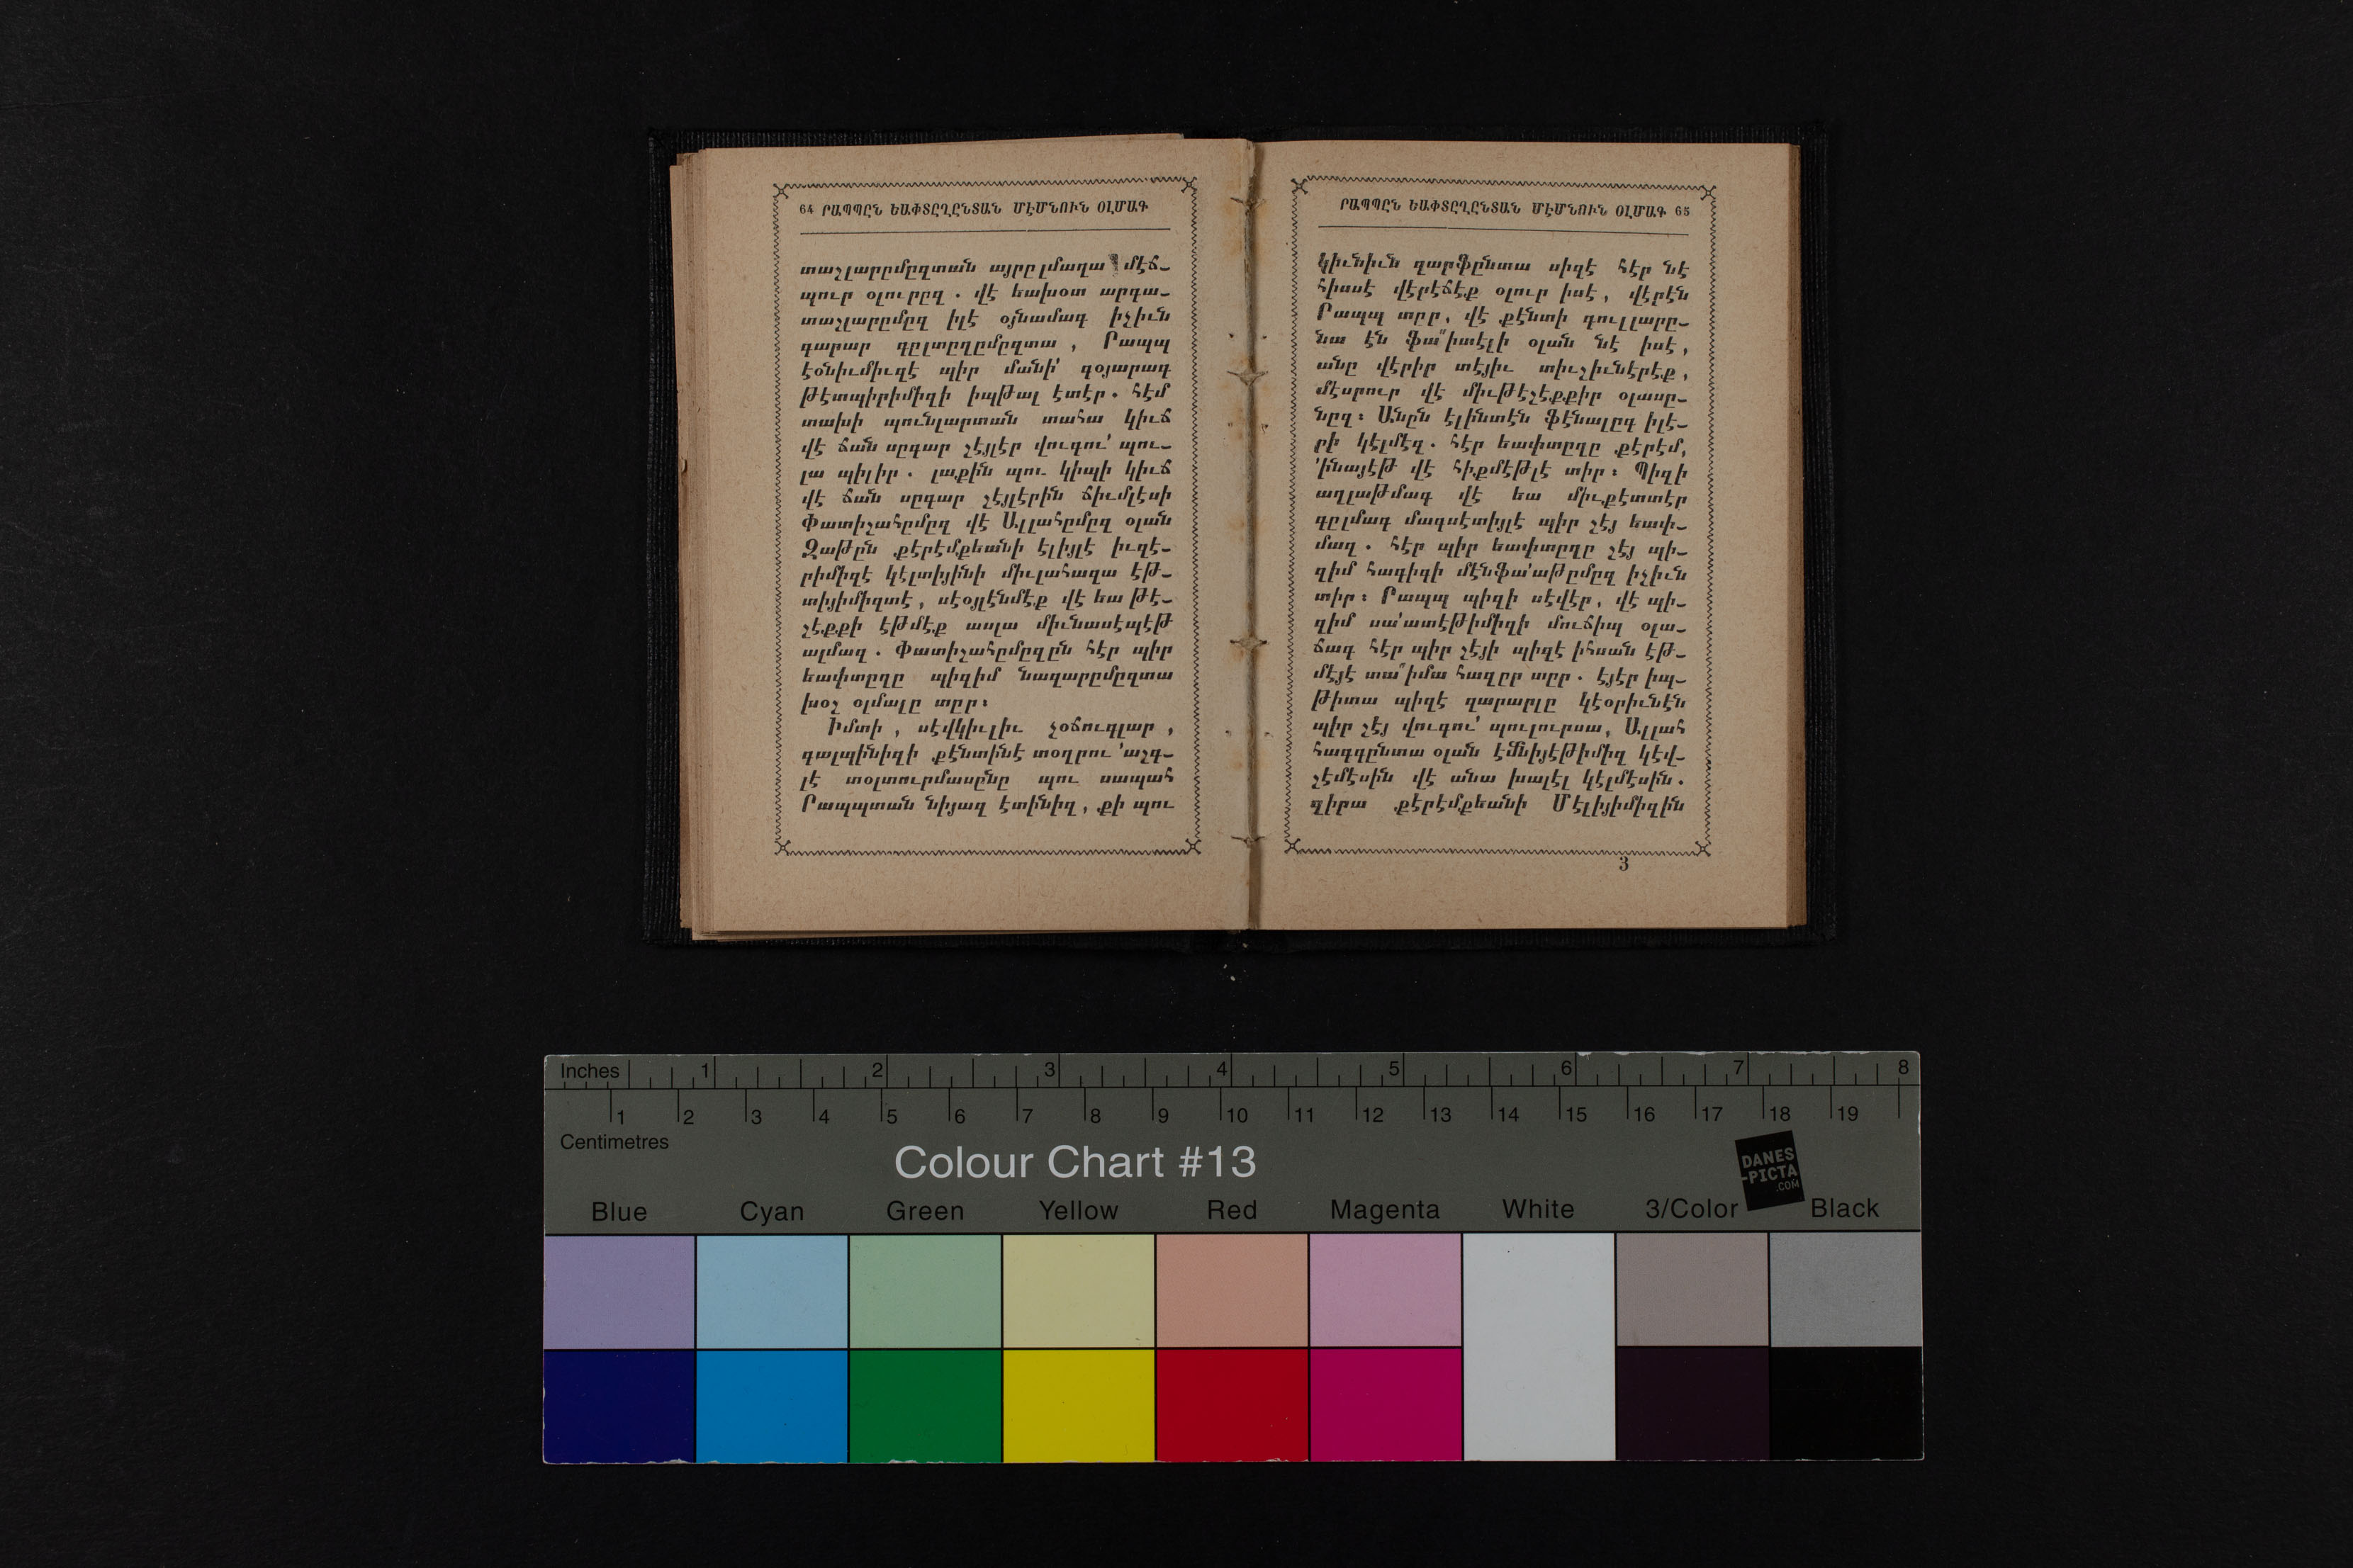 64 ՐԱՊՊԸՆ ԵԱՓՏԸՂԸՆՏԱՆ ՄԷՄՆՈՒՆ ՕԼՄԱԳ
տաշլարըմըզտան այրըլմաղա մէճ-
պուր օլուրըզ. վէ եախօտ արգա-
տաշլարըմըզ իլէ օյնամագ իչիւն
գարար գըլտըղըմըզտա, Րապպ
էօնիւմիւզէ պիր մանի՛ գօյարագ
թէտպիրիմիզի իպթալ էտէր. հէմ
տախի պունլարտան տահա կիւճ
վէ ճան սըգար շէյլէր վուգու՛ պու-
լա պիլիր. լաքին պու կիպի կիւճ
վէ ճան սըգար շէյլէրին ճիւմլէսի
Փատիշահըմըզ վէ Ալլահըմըզ օլան
Զաթըն քէրէմքեանի էլիյլէ իւզէ-
րիմիզէ կէլտիյինի միւլահազա էթ-
տիյիմիզտէ, սէօյլէնմէք վէ եա թէ-
շէքքի էթմէք ասլա միւնասէպէթ
ալմազ. Փատիշահըմըզըն հէր պիր
եափտըղը պիզիմ նազարըմըզտա
խօշ օլմալը տըր։
Իմտի, սէվկիւլիւ չօճուգլար,
գալպինիզի քէնտինէ տօղրու ՚աշգ-
լէ տօլտուրմասընը պու սապահ
Րապպտան նիյազ էտինիզ, քի պու
ՐԱՊՊԸՆ ԵԱՓՏԸՂԸՆՏԱՆ ՄԷՄՆՈՒՆ ՕԼՄԱԳ 65
կիւնիւն զարֆընտա սիզէ հէր նէ
հիսսէ վէրէճէք օլուր իսէ, վէրէն
Րապպ տըր, վէ քէնտի գուլլարը-
նա էն ֆա՞իտէլի օլան նէ իսէ,
անը վէրիր տէյիւ տիւշիւնէրէք,
մէսրուր վէ միւթէշէքքիր օլասը-
նըզ։ Անըն էլինտէն ֆէնալըգ իլէ-
րի կէլմէզ. հէր եափտըղը քէրէմ,
՚ինայէթ վէ հիքմէթլէ տիր։ Պիզի
աղլաթմագ վէ եա միւքէտտէր
գըլմագ մագսէտիյլէ պիր շէյ եափ-
մազ. հէր պիր եափտըղը շէյ պի-
զիմ հագիգի մէնֆա՛աթըմըզ իչիւն
տիր։ Րապպ պիզի սէվէր, վէ պի-
զիմ սա՛ատէթիմիզի մուճիպ օլա-
ճագ հէր պիր շէյի պիզէ իհսան էթ-
մէյէ տա՞իմա հազըր տըր. էյէր իպ-
թիտա պիզէ զարարլը կէօրիւնէն
պիր շէյ վուգու՛ պուլուրսա, Ալլահ
հագգընտա օլան էմնիյէթիմիզ կէվ-
շէմէսին վէ անա խալէլ կէլմէսին.
զիրա քէրէմքեանի Մէլիյիմիզին
3
Inches 1 2 3 4 5 6 7 8
1 2 3 4 5 6 7 8 9 10 11 12 13 14 15 16 17 18 19
Centimetres
Colour Chart #13
DANES
-PICTA
.COM
Blue Cyan Green Yellow Red Magenta White 3/Color Black